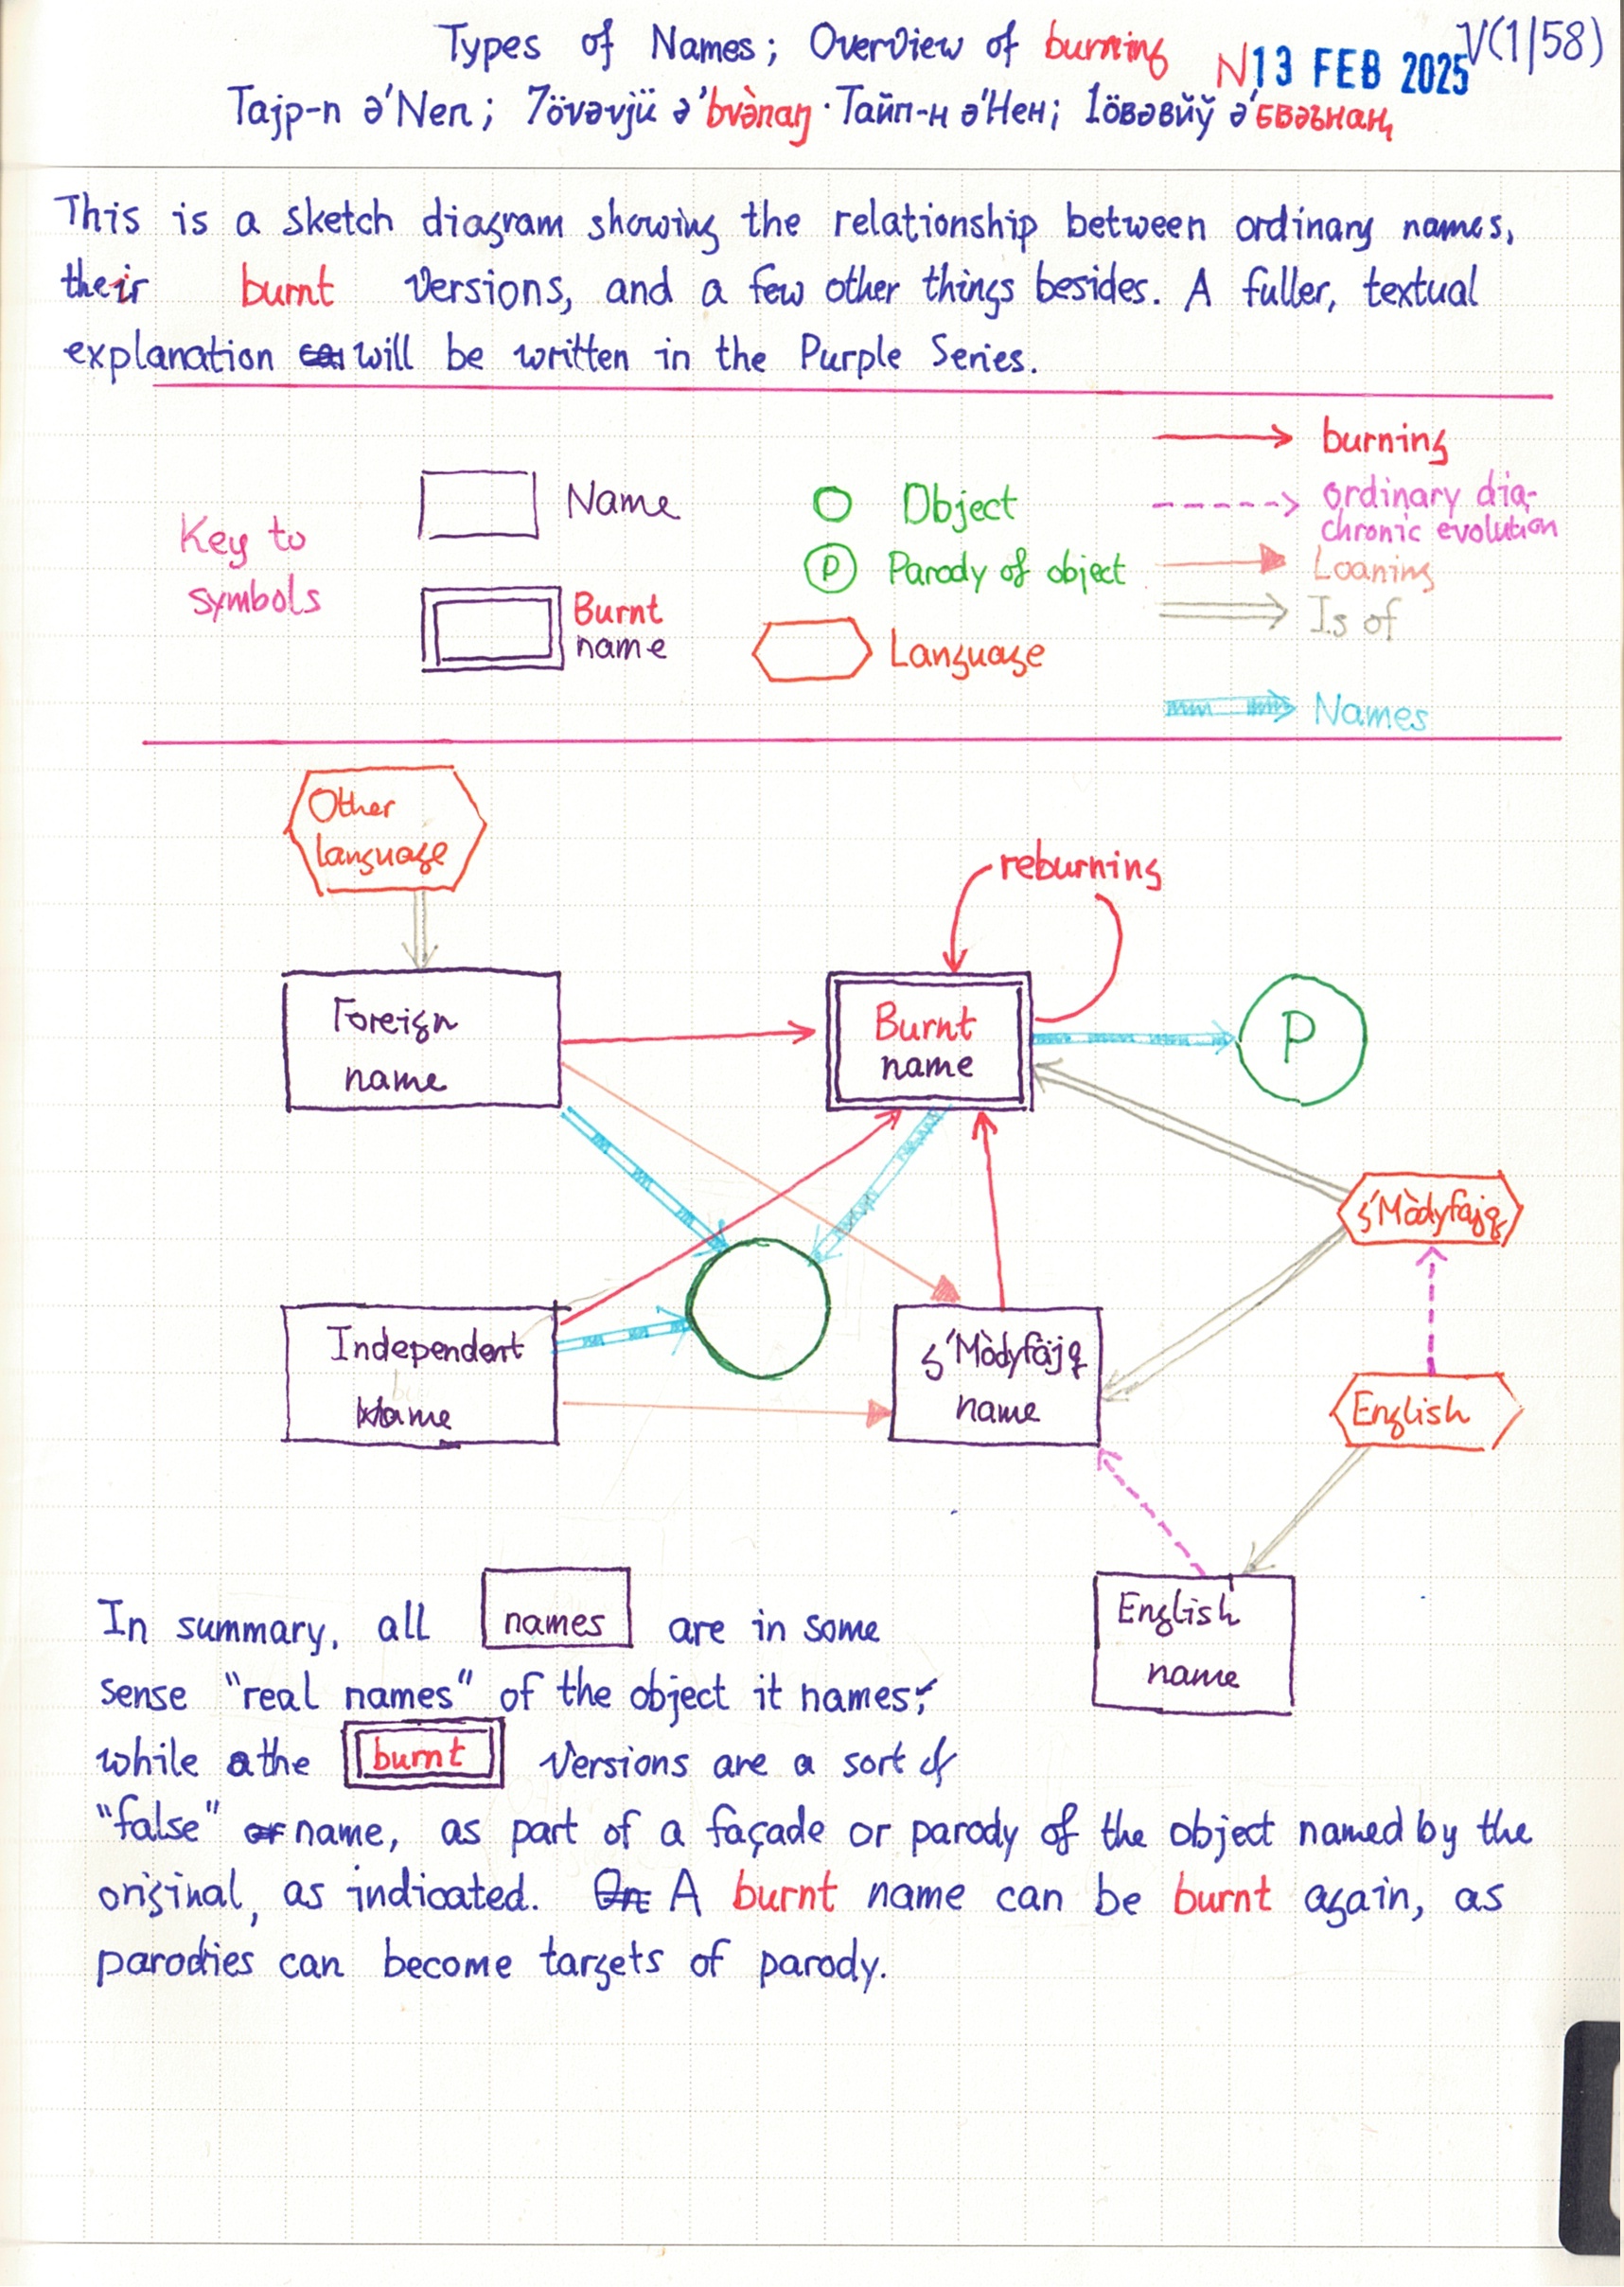 Types of Names; Overview of burning
N13 FEB 2025 V(1|58)
Tajp-n ə'Nen; 7övəvjü ə'bvə̀naŋ · Тайп-н ə'Нен; 1öвəвйӱ ə'бвəънаң
This is a sketch diagram showing the relationship between ordinary names,
their burnt versions, and a few other things besides. A fuller, textual
explanation will be written in the Purple Series.
Key to
symbols
Name
Burnt
name
Object
P Parody of object
Language
burning
ordinary dia-
chronic evolution
Loaning
Is of
Names
Other
language
reburning
Foreign
name
Burnt
name
P
ʢ'Mòdyfäjq
Independent
Name
ʢ'Mòdyfäjq
name
English
English
name
In summary, all names are in some
sense "real names" of the object it names;
while the burnt versions are a sort of
"false" name, as part of a façade or parody of the object named by the
original, as indicated. A burnt name can be burnt again, as
parodies can become targets of parody.